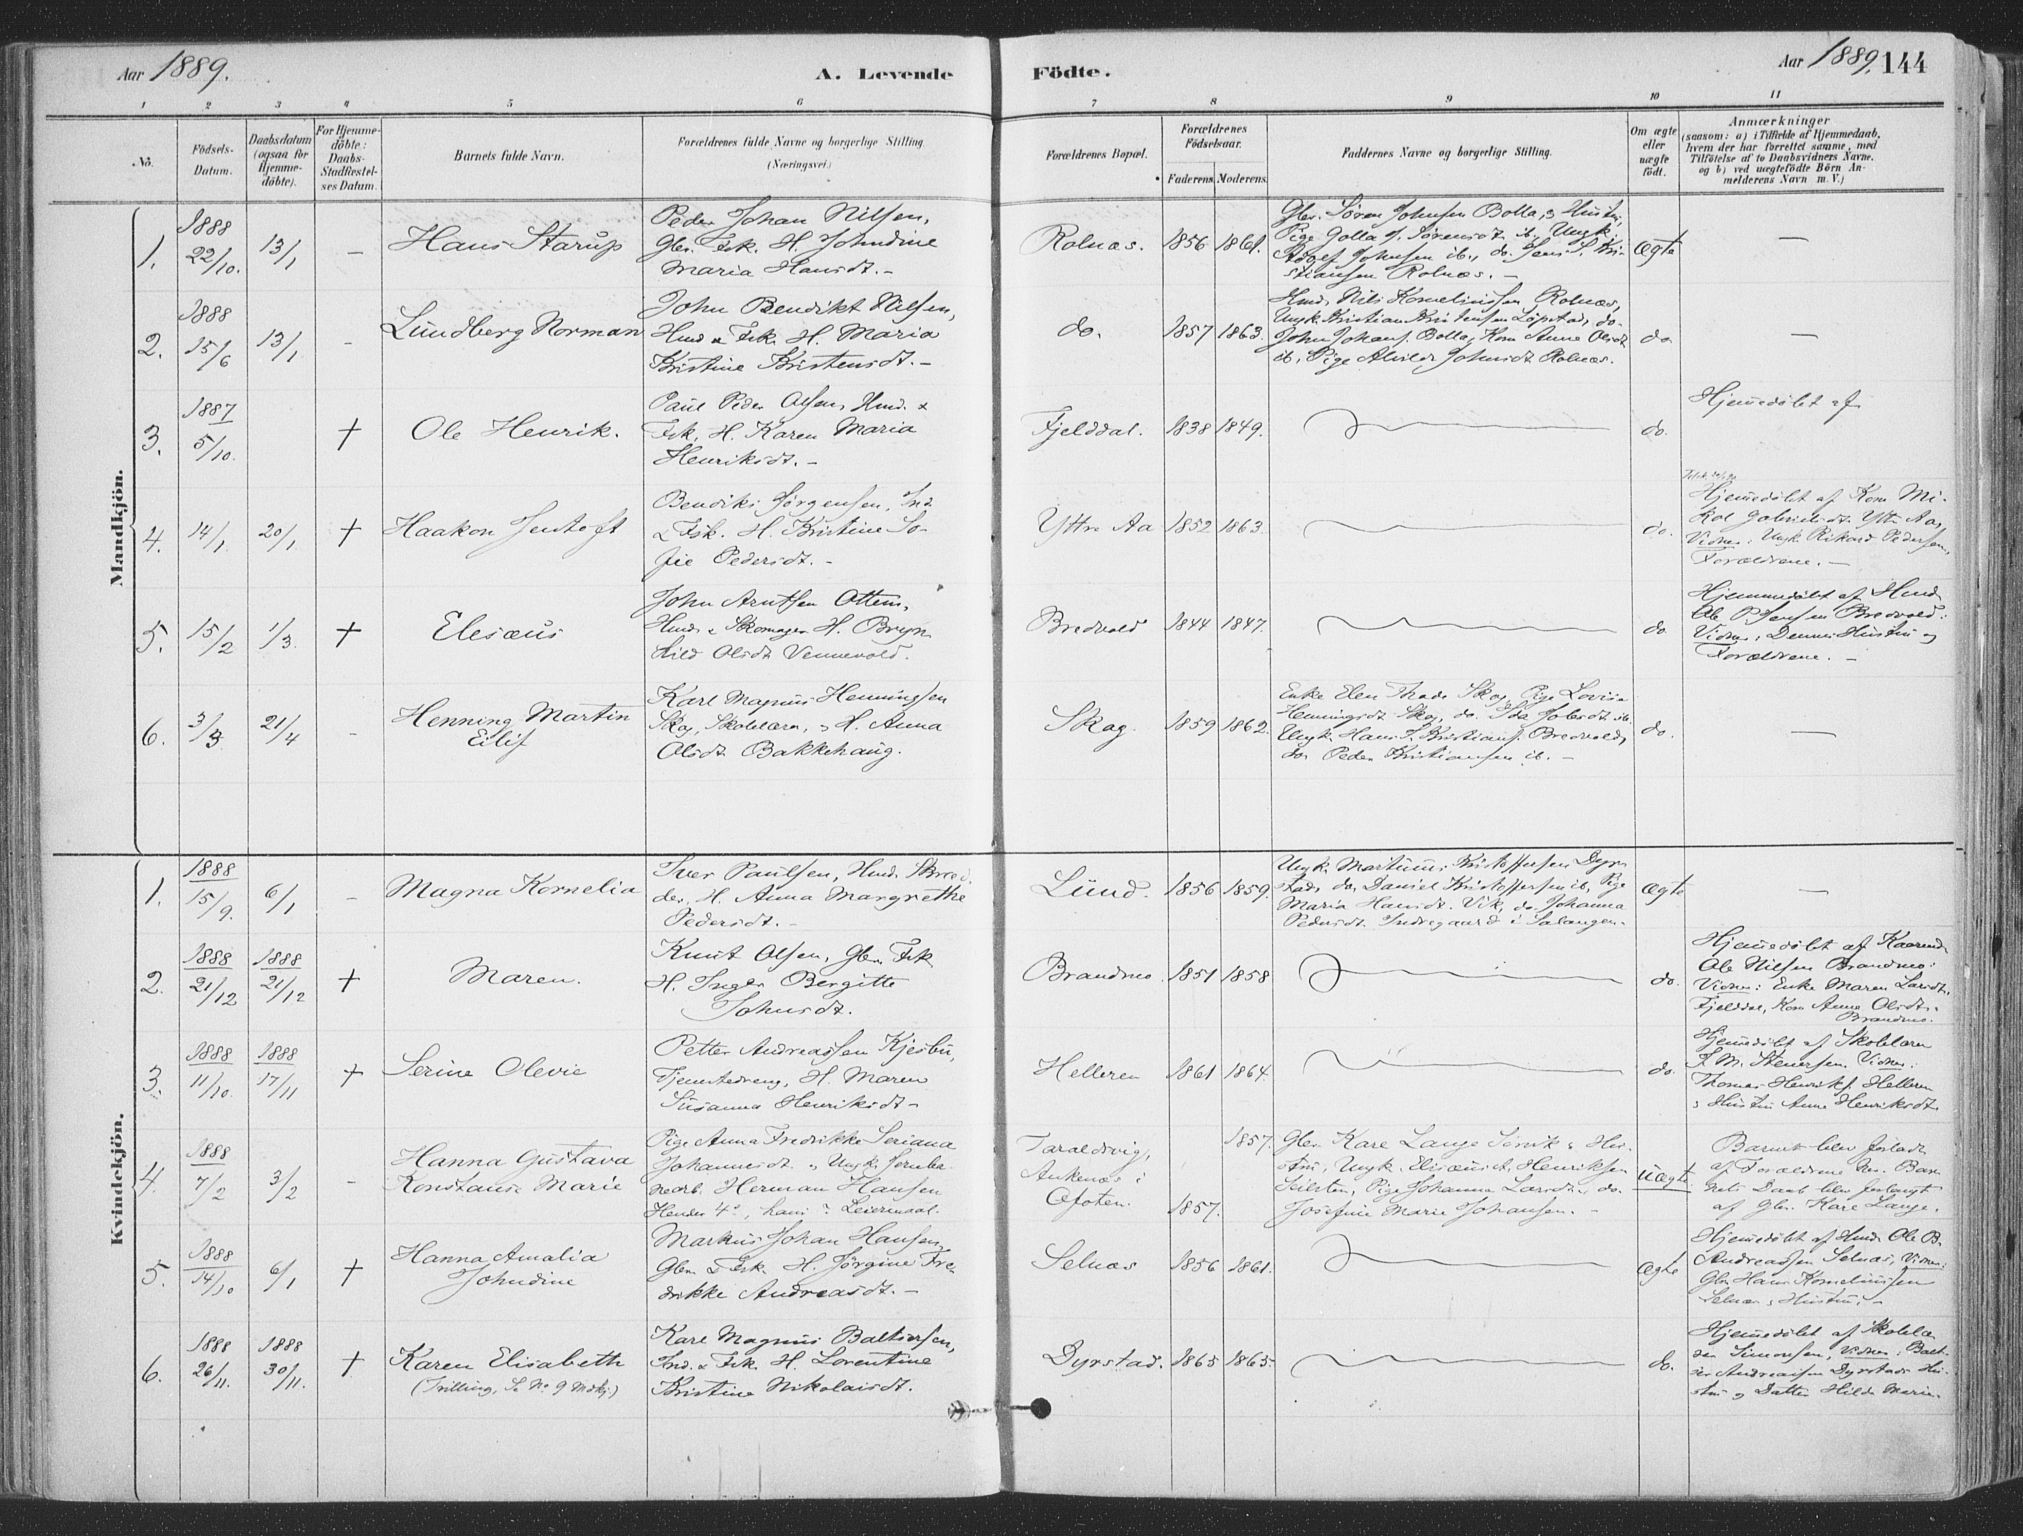 Aar 1889.
A. Levende
Födte.
Aar 1889. 144
1 2 3 4 5 6 7 8 9 10 11
No.
Födsels-
Datum.
Daabsdatum
(ogsaa for
Hjemme-
döbte).
For Hjemme-
döbte:
Daabs-
Stadfæstel-
ses Datum.
Barnets fulde Navn.
Forældrenes fulde Navne og borgerlige Stilling.
(Næringsvei.)
Forældrenes Bopæl.
Forældrenes
Födselsaar.
Faderens. Moderens.
Faddernes Navne og borgerlige Stilling.
Om ægte
eller
uægte
födt.
Anmærkninger
(saasom: a) i Tilfælde af Hjemmedaab,
hvem der har forrettet samme, med
Tilföielse af to Daabsvidners Navne.
og b) ved uægtefödte Börn An-
melderens Navn m. V.)
Mandkjön.
1. 1888 22/10. 13/1 – Hans Starup
Peder Johan Nilsen,
Gbr. Fsk. H. Johndine
Maria Hansdt. –
Rolnæs. 1856 1861.
Gbr. Sören Johnsen Bolla, & Hustru,
Pige Golla J. Sörensdt. ib., Ungk.
Adolf Johnsen ib., do. Jens S. Kri-
stiansen Rolnæs. –
Ægte –
2. 1888 15/6 13/1 – Lundberg Norman
John Bendikt Nilsen,
Hmd & Fsk. H. Maria
Kristine Kristensdt. –
do. 1857 1863.
Hmd. Nils Kornelinssen Rolnæs,
Ungk. Kristian Kristensen Löpstad, do.
John Johans. Bolla, Kone Anne Olsdt.
ib., Pige Alvilde Johnsdt. Rolnæs.
do –
3. 1887 5/10. † Ole Henrik.
Paul Peder Olsen, Hmd. &
Fsk., H. Karen Maria
Henriksdt. –
Fjelddal. 1838 1849.
do.
Hjemedöbt af
4. 14/1 20/1 † Haakon Jentoft
Bendiks Jörgensen, Ind
& Fsk. H. Kristine So-
fie Pedersdt. –
Yttre Aa 1852 1863.
do.
Hjemedöbt af Kone Mi-
kal Gabrielsdt. Yttr. Aa,
Vidner: Ungk. Rikard Pedersen,
Forældrene. –
5. 15/2 1/3. † Elesæus
John Arntsen Ottem,
Hmd & Skomager H. Bryn
hild Olsdt. Vennevold.
Bredvold 1844 1847.
do.
Hjemmedöbt af Hmd
Ole P. Jensen Bredvold:
Vidner: Dennes Hustru og
Forældrene. –
6. 3/3 21/4 – Henning Martin
Eilif
Karl Magnus Henningsen
Skog, Skolelærer, & H. Anna
Olsdt. Bakkehaug.
Skog. 1859 1862.
Enke Elen Skog, Pige Lovise
Henningsdt. Skog, do. Ida ib.
Ungk. Hans J. Kristians. Bredvold,
do. Peder Kristiansen ib. –
do. –
Kvindekjön.
1. 1888 15/9. 6/1 – Magna Kornelia
Iver Paulsen, Hmd. Skred
der, H. Anna Margrethe
Pedersdt. –
Lund. 1856 1859.
Ungk. Martinus Kristoffersen Dyr-
stad, do. Daniel Kristoffersen ib., Pige
Maria Hansdt. Vik, do. Johanna
Pedersdt. Indregaard i Salangen.
Ægte –
2. 1888 21/12 1888 21/12 † Maren.
Knut Olsen, Gbr. Fsk
H. Inger Bergitte
Johnsdt.
Brandmo. 1851 1858
do.
Hjemedöbt af Kaarmd.
Ole Nilsen Brandmo:
Vidner: Enke Maren Larsdt.
Fjelddal, Kone Anne Olsdt.
Brandmo.
3. 1888 11/10. 1888 17/11 † Serine Olevie
Petter Andreassen Kjesbu,
Tjenestedreng, H. Maren
Susanna Henriksdt –
Helleren 1861 1864.
do.
Hjemedöbt af Skolelærer
J. M. Stenersen. Vidner:
Thomas Henriks. Helleren
& Hustru Anne Henriksdt.
4. 1888 7/2 3/2 – Hanna Gustava
Konstanse Marie
Pige Anna Fredrikke Seriana
Johannesdt. & Ungk. Jernba-
nearb. Herman Hansen
Hendes 4de, hans ? Leiermaal.
Taraldsvig,
Ankenæs i
Ofoten. 1857. 1857.
Gbr. Kare Lange Sörvik & Hu-
stru, Ungk. Elisæus A. Henriksen
Pige Johanna Larsdt., do.
Josefine Marie Johansen. –
Uægte
Barnet blev forladt
af Forældrene. Bar-
nets Daab blev forlangt
af Gbr. Kare Lange.
5. 1888 14/10 6/1 † Hanna Amalia
Johndine
Markus Johan Hansen,
Gbr. & Fsk. H. Jörgine Fre
drikke Andreasdt. –
Selnæs 1856 1861.
Ægte
Hjemedöbt af Hmd. Ole B.
Andreassen Selnæs, Vidner:
Gbr. Hans Kornelinssen
Selnæs & Hustru. –
6. 1888 26/11. 1888 30/11. † Karen Elisabeth
(Tvilling, Se No 9 Mdkj.)
Karl Magnus Baltsersen,
Ind. & Fsk. H. Lorentine
Kristine Nikolaisdt.
Dyrstad. 1865 1865
do.
Hjemedöbt af Skolelæ
rer Simonsen, Vidner: Balt-
ser Andreassen Dyrstad, Hu-
stru og Datter Hilda Marie.